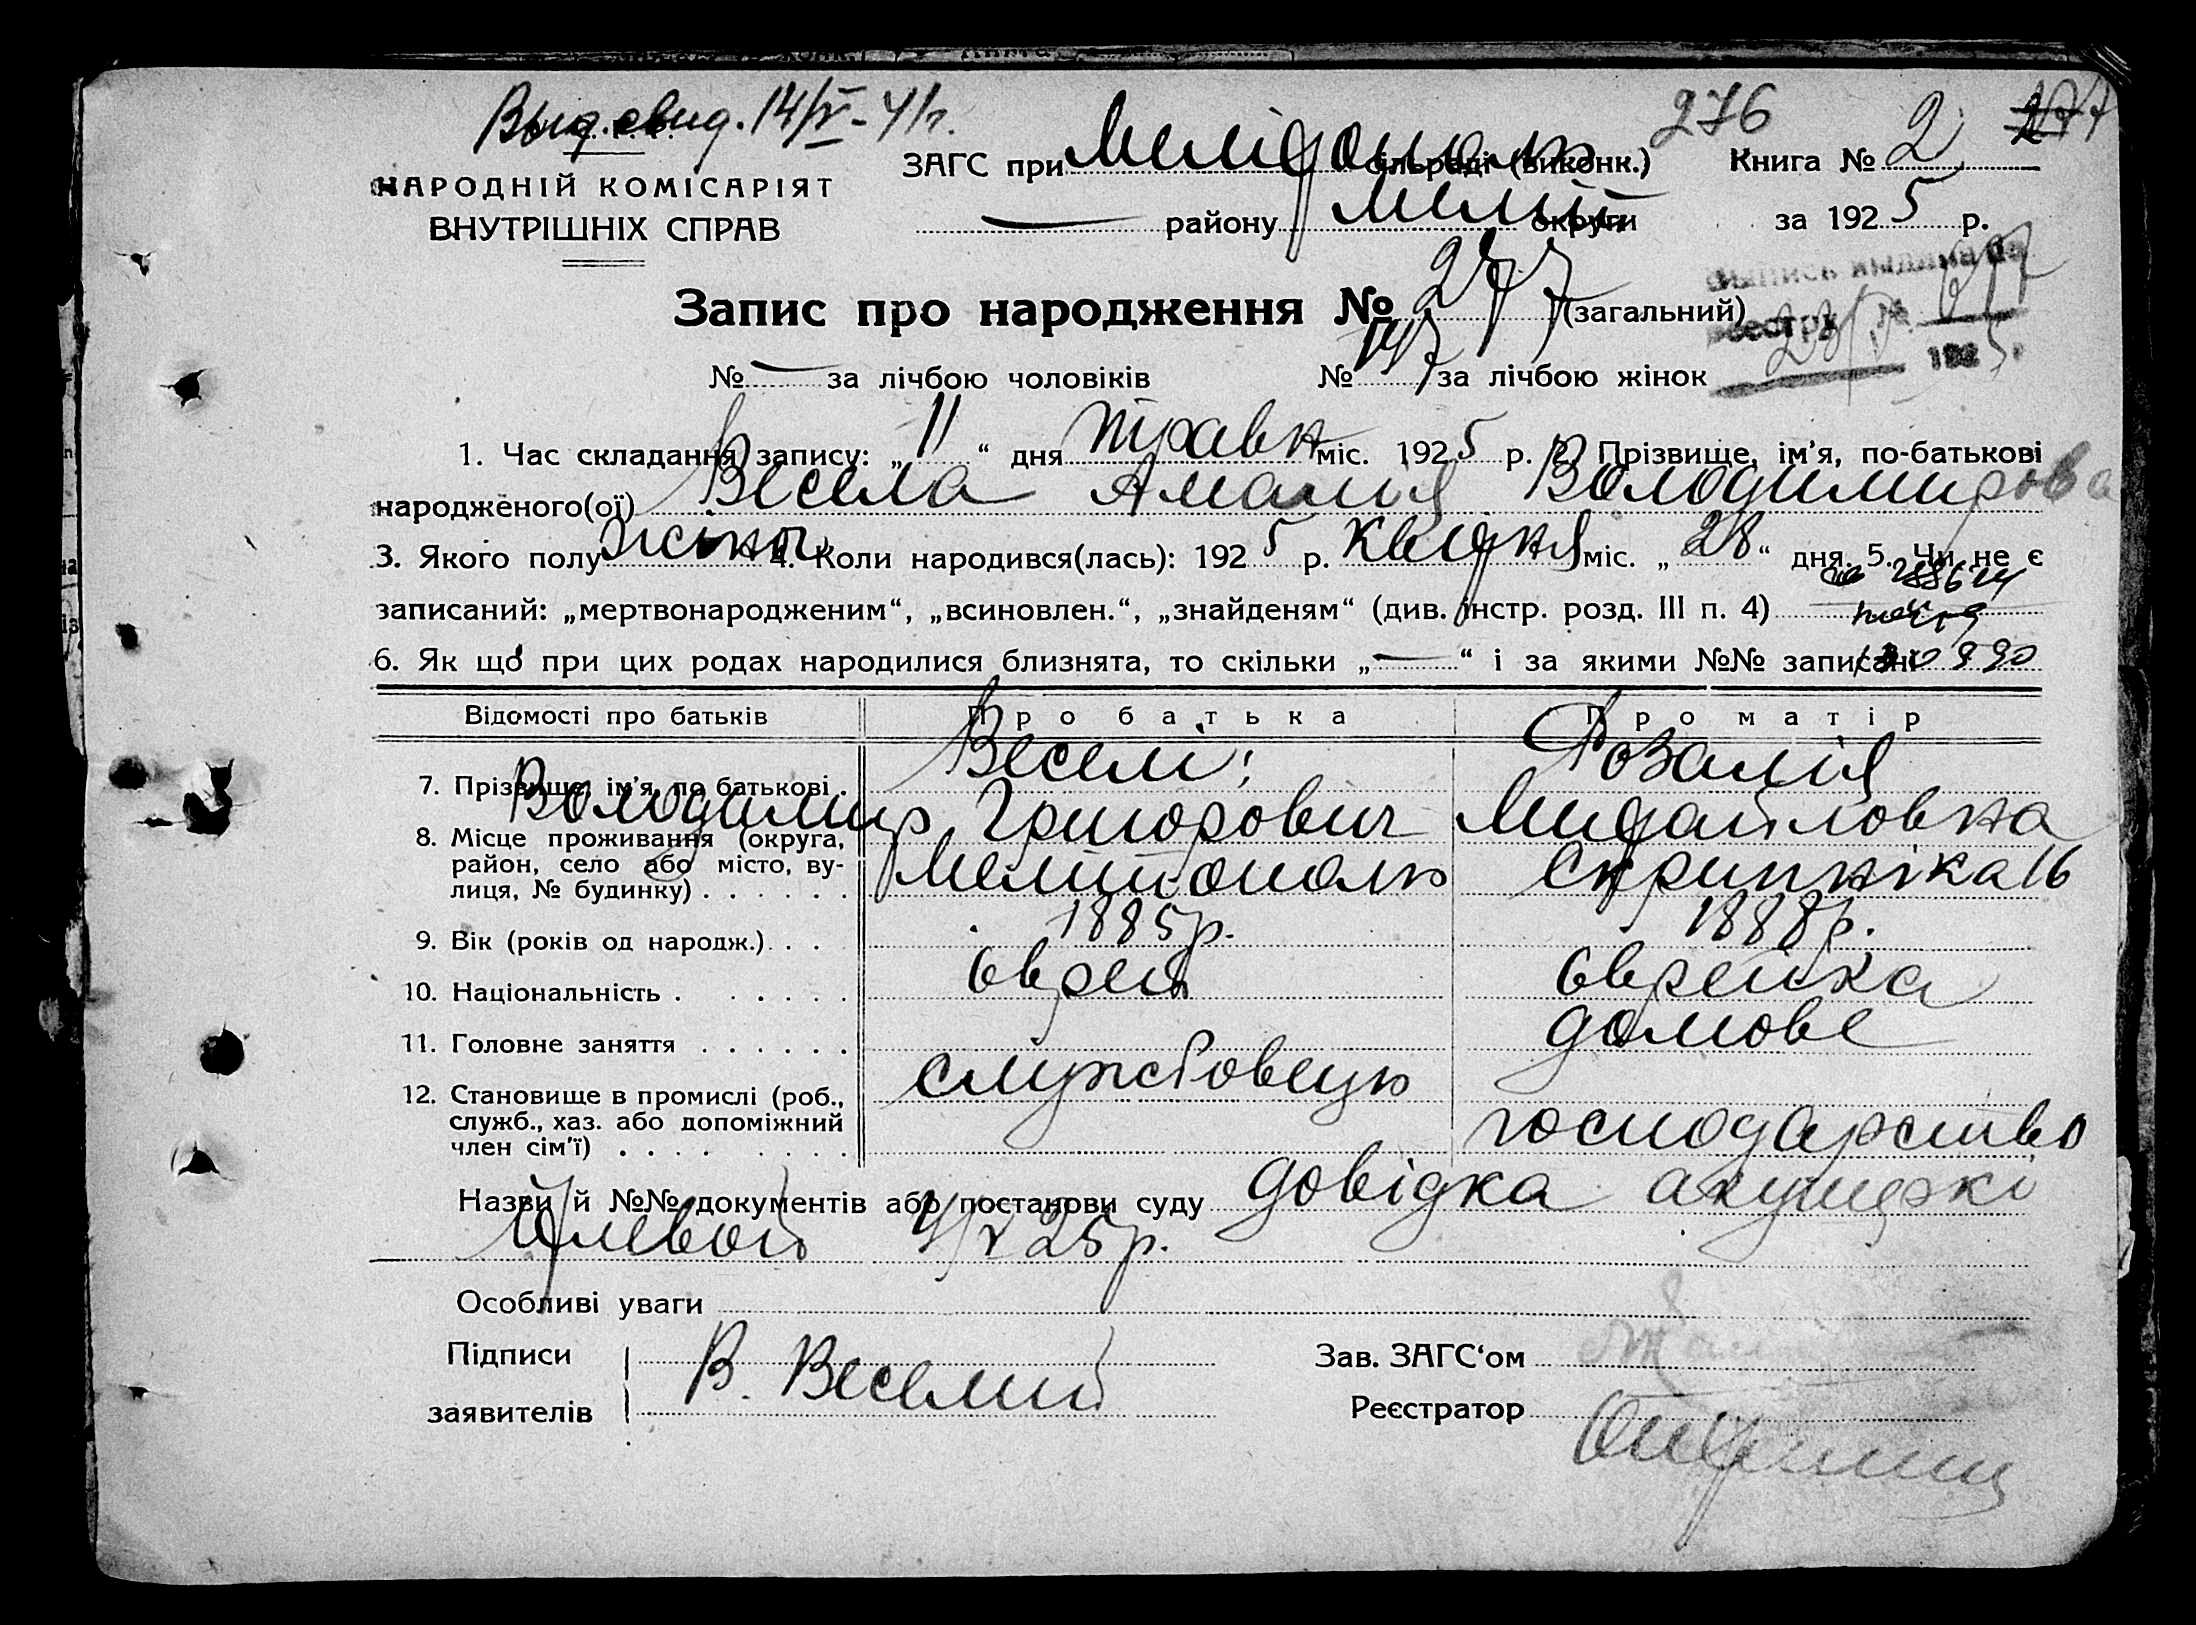 Выд. свид. 14/V - 41 г.
276
НАРОДНІЙ КОМІСАРІЯТ
ВНУТРІШНІХ СПРАВ
ЗАГС при Мелітополь сільраді (виконк.) Книга № 2 277
— району Меліт округи за 1925 р.
Запис про народження № 277 (загальний)
№ — за лічбою чоловіків № 147 за лічбою жінок
Выпись выдана по
реестру №
192
1. Час складання запису: „11“ дня травня міс. 1925 р. 2. Прізвище, ім'я, по-батькові
народженого(ої) Весела Амалія Володимирова
3. Якого полу жіноч 4. Коли народився(лась): 1925 р. Квітня міс. „28“ дня. 5. Чи не є
записаний: „мертвонародженим“, „всиновлен.“, „знайденям“ (див. інстр. розд. III п. 4)
6. Як що при цих родах народилися близнята, то скільки „—“ і за якими №№ записані
Відомості про батьків Про батька Про матір
7. Прізвище, ім'я, по батькові . Веселі; Розалія
Володимир Григорович Михайловна
8. Місце проживання (округа, район, село або місто, вулиця, № будинку) . . . . . . Мелітополь Скрипніка 16
9. Вік (років од народж.) . . . 1885 р. 1888 р.
10. Національність . . . . . . Єврей Єврейка
11. Головне заняття . . . . . . домове
12. Становище в промислі (роб., служб., хаз. або допоміжний член сім'ї) . . . . службовець господарство
Назви й №№ документів або постанови суду довідка акушеркі
4/V 25 р.
Особливі уваги
Підписи
заявителів
В. Веселий
Зав. ЗАГС'ом
Реєстратор